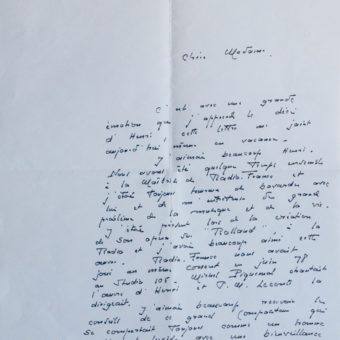 Chère Madame,
C'est avec une grande
émotion que j'apprends le décès
d'Henri, cette lettre me joint
aujourd'hui même en vacances.
J'aimais beaucoup Henri.
Nous avons été quelque temps ensemble
à la Maîtrise de Radio-France et
j'étais toujours heureux de bavarder avec
lui et de m'entretenir du grand
problème de la musique et de la vie.
J'étais présent lors de la création
de son opéra sur "Rolland" à la
Radio et j'avais beaucoup aimé cette
œuvre. Radio-France nous avait
joué au même concert en juin 78
au Studio 105. Michel Piquemal chantait
l'œuvre d'Henri et J. M. Leconte la
dirigeait.
J'aimais beaucoup recevoir les
conseils de ce grand compositeur qui
se comportait toujours comme un homme
avec une bienveillance